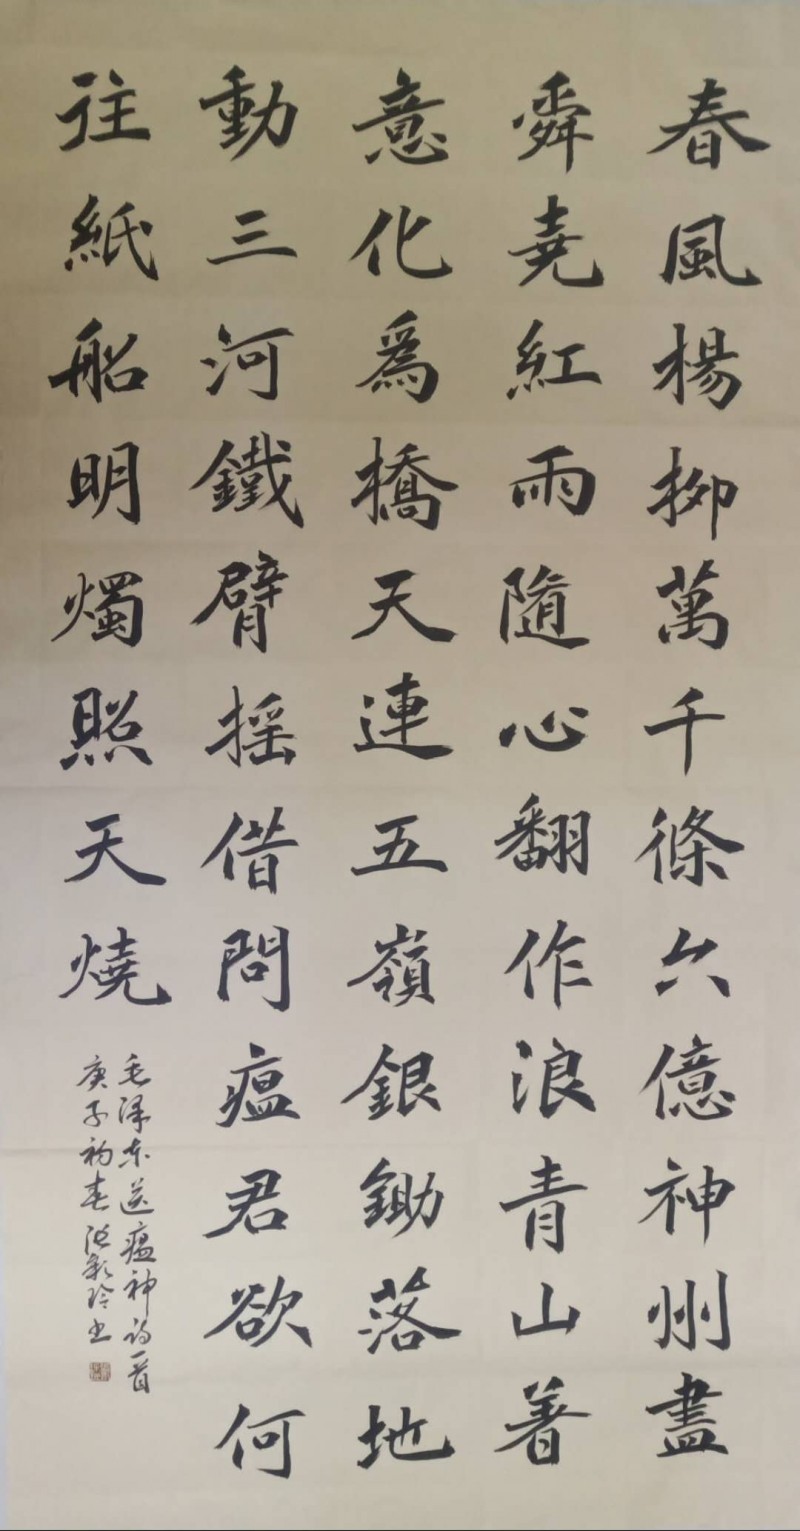 春風楊柳萬千條六億神州盡
舜堯紅雨隨心翻作浪青山着
意化為橋天連五嶺銀鋤落地
動三河鐵臂摇借問瘟君欲何
往紙船明燭照天燒
毛泽东送瘟神诗一首
庚子初春玲书